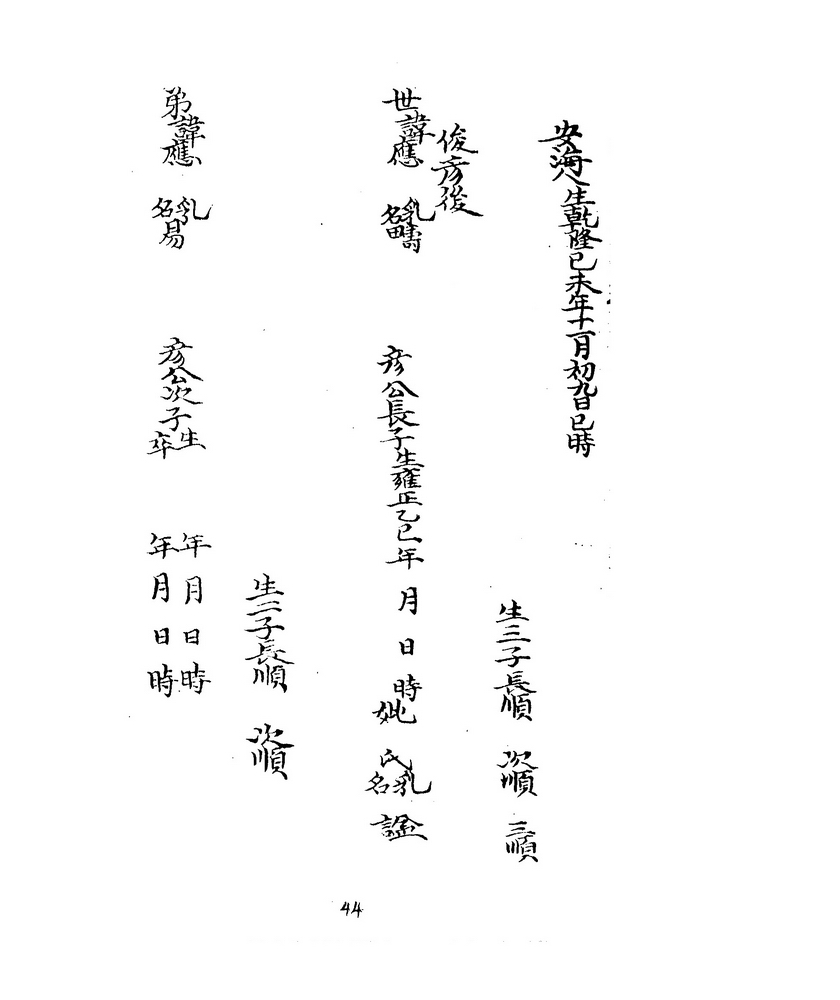 安海人生乾隆已未年十一月初九日巳時
生三子長順 次順 三順
俊彥後
世諱應 乳名疇 彥公長子生雍正乙巳年 月 日 時妣 氏乳名 謚
生二子長順 次順
弟諱應 乳名易 彥公次子生卒 年月日時 年月日時
44